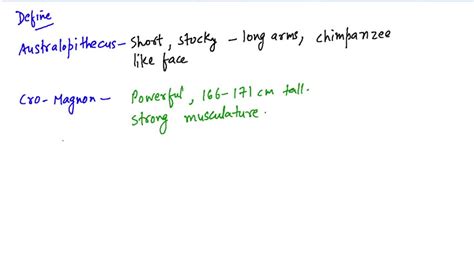 Define
Australopithecus - Short, stocky - long arms, chimpanzee
like face
Cro-Magnon - Powerful, 166-171 cm tall.
strong musculature.